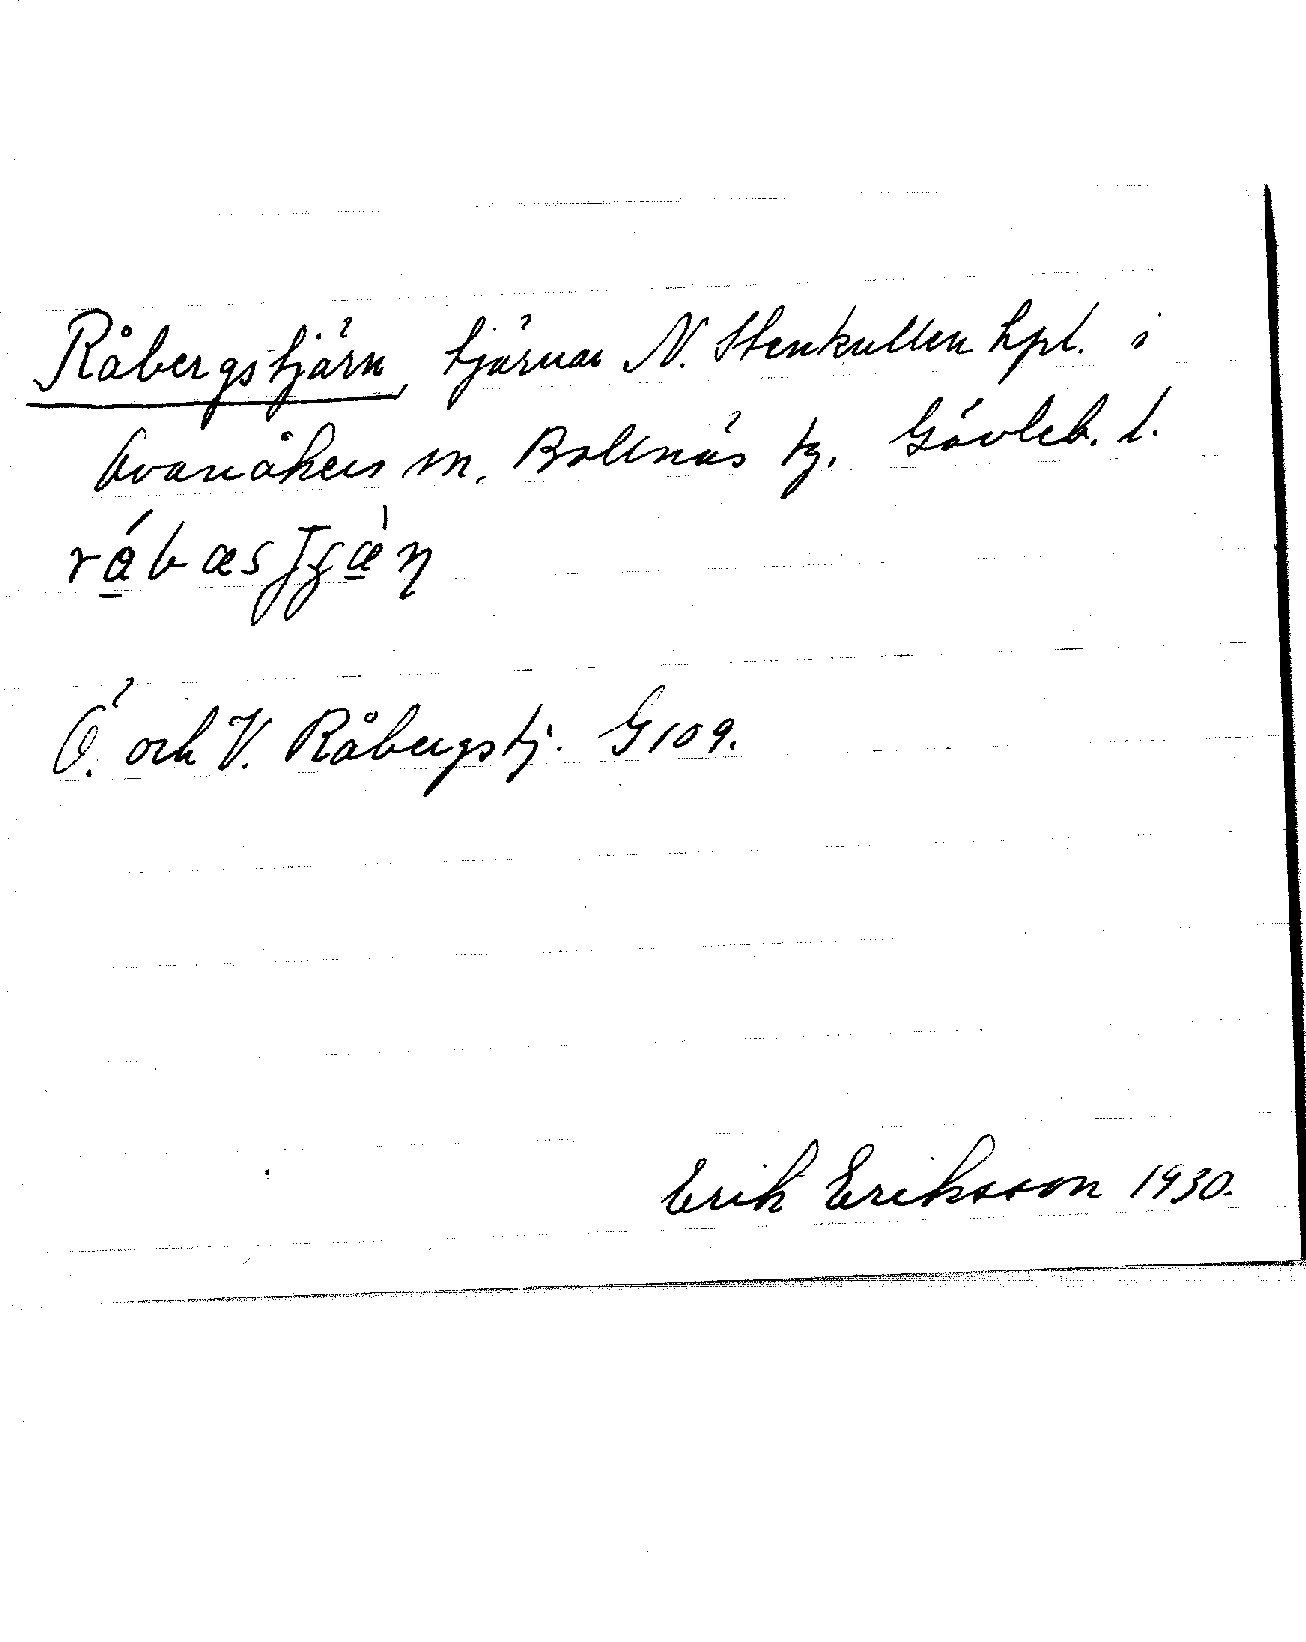 Råbergstjärn, tjärnar N. Stenkullen hpl. i
Ovanåkers sn, Bollnäs tg. Gävleb. l.
Ö. och V. Råbergstj. G 109.
Erik Eriksson 1930.